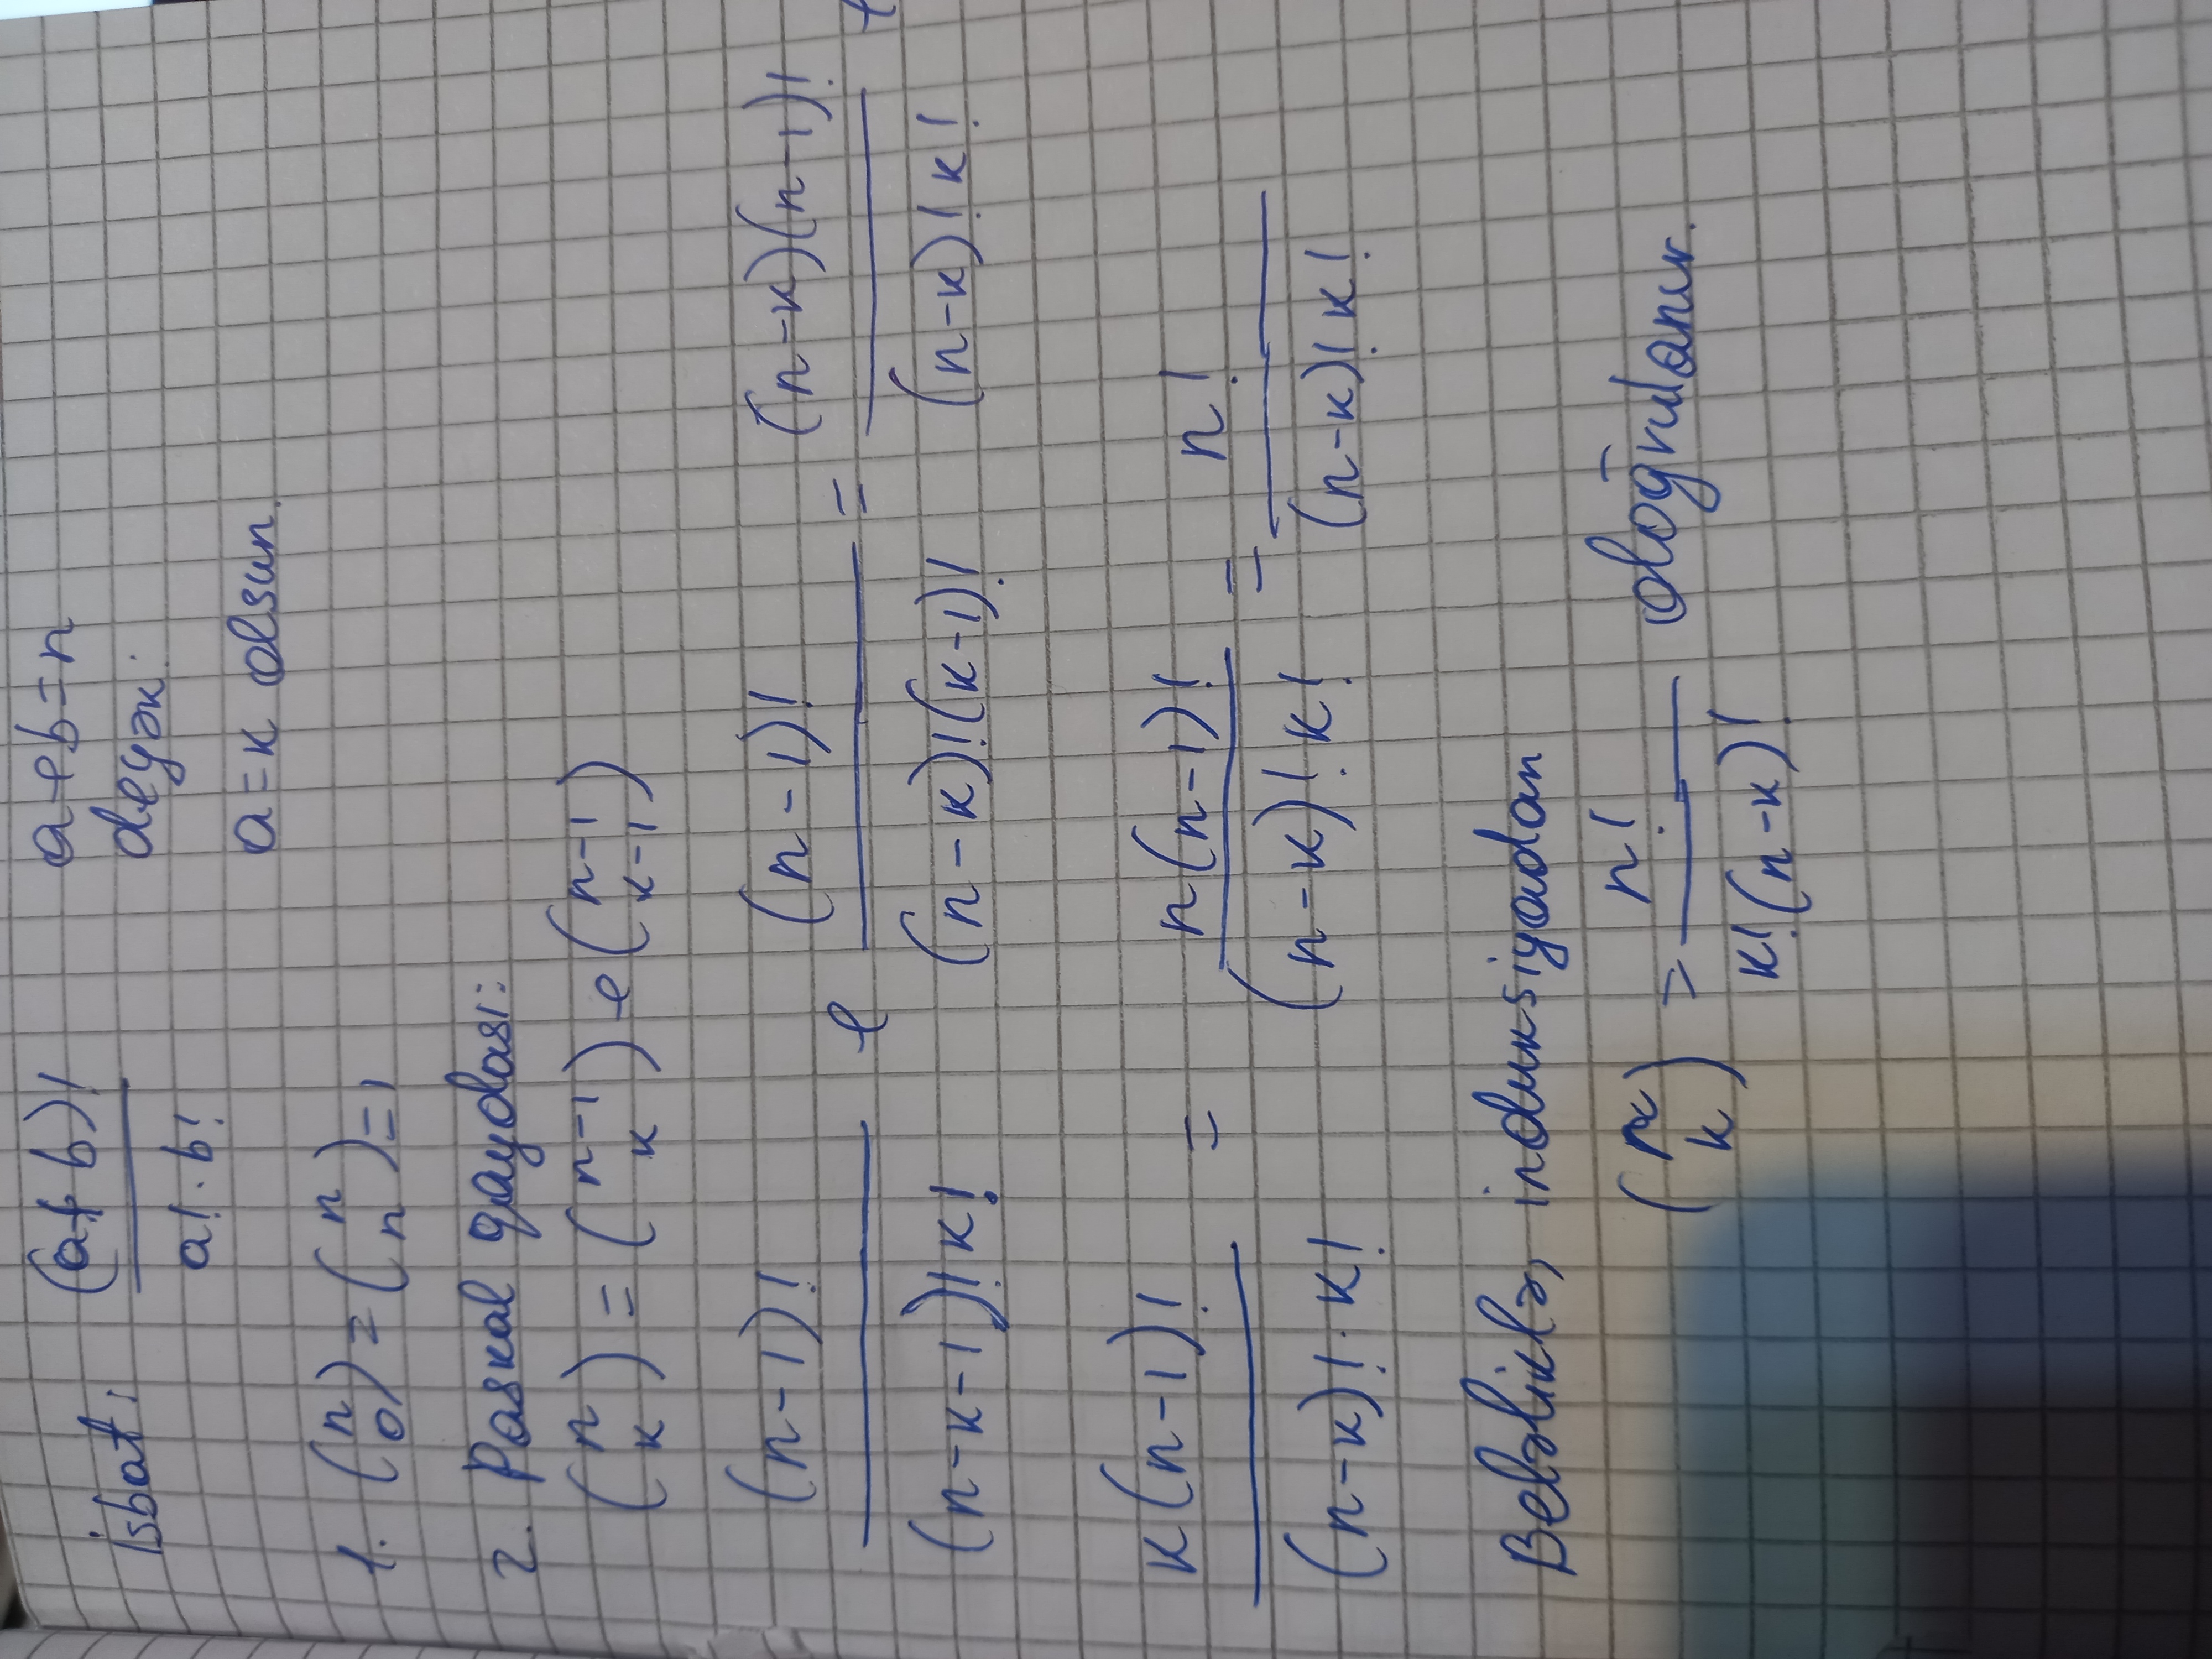 isbat: (a+b)! / a!·b! a+b=n
deyək.
a=k olsun.
1. (n 0) = (n n) = 1
2. Paskal qaydası:
(n k) = (n-1 k) + (n-1 k-1)
(n-1)! / (n-k-1)! k! + (n-1)! / (n-k)!(k-1)! = (n-k)(n-1)! / (n-k)! k! +
k(n-1)! / (n-k)!·k! = n(n-1)! / (n-k)! k! = n! / (n-k)! k!
Beləliklə, induksiyadan
(n k) = n! / k!(n-k)! doğrulanır.